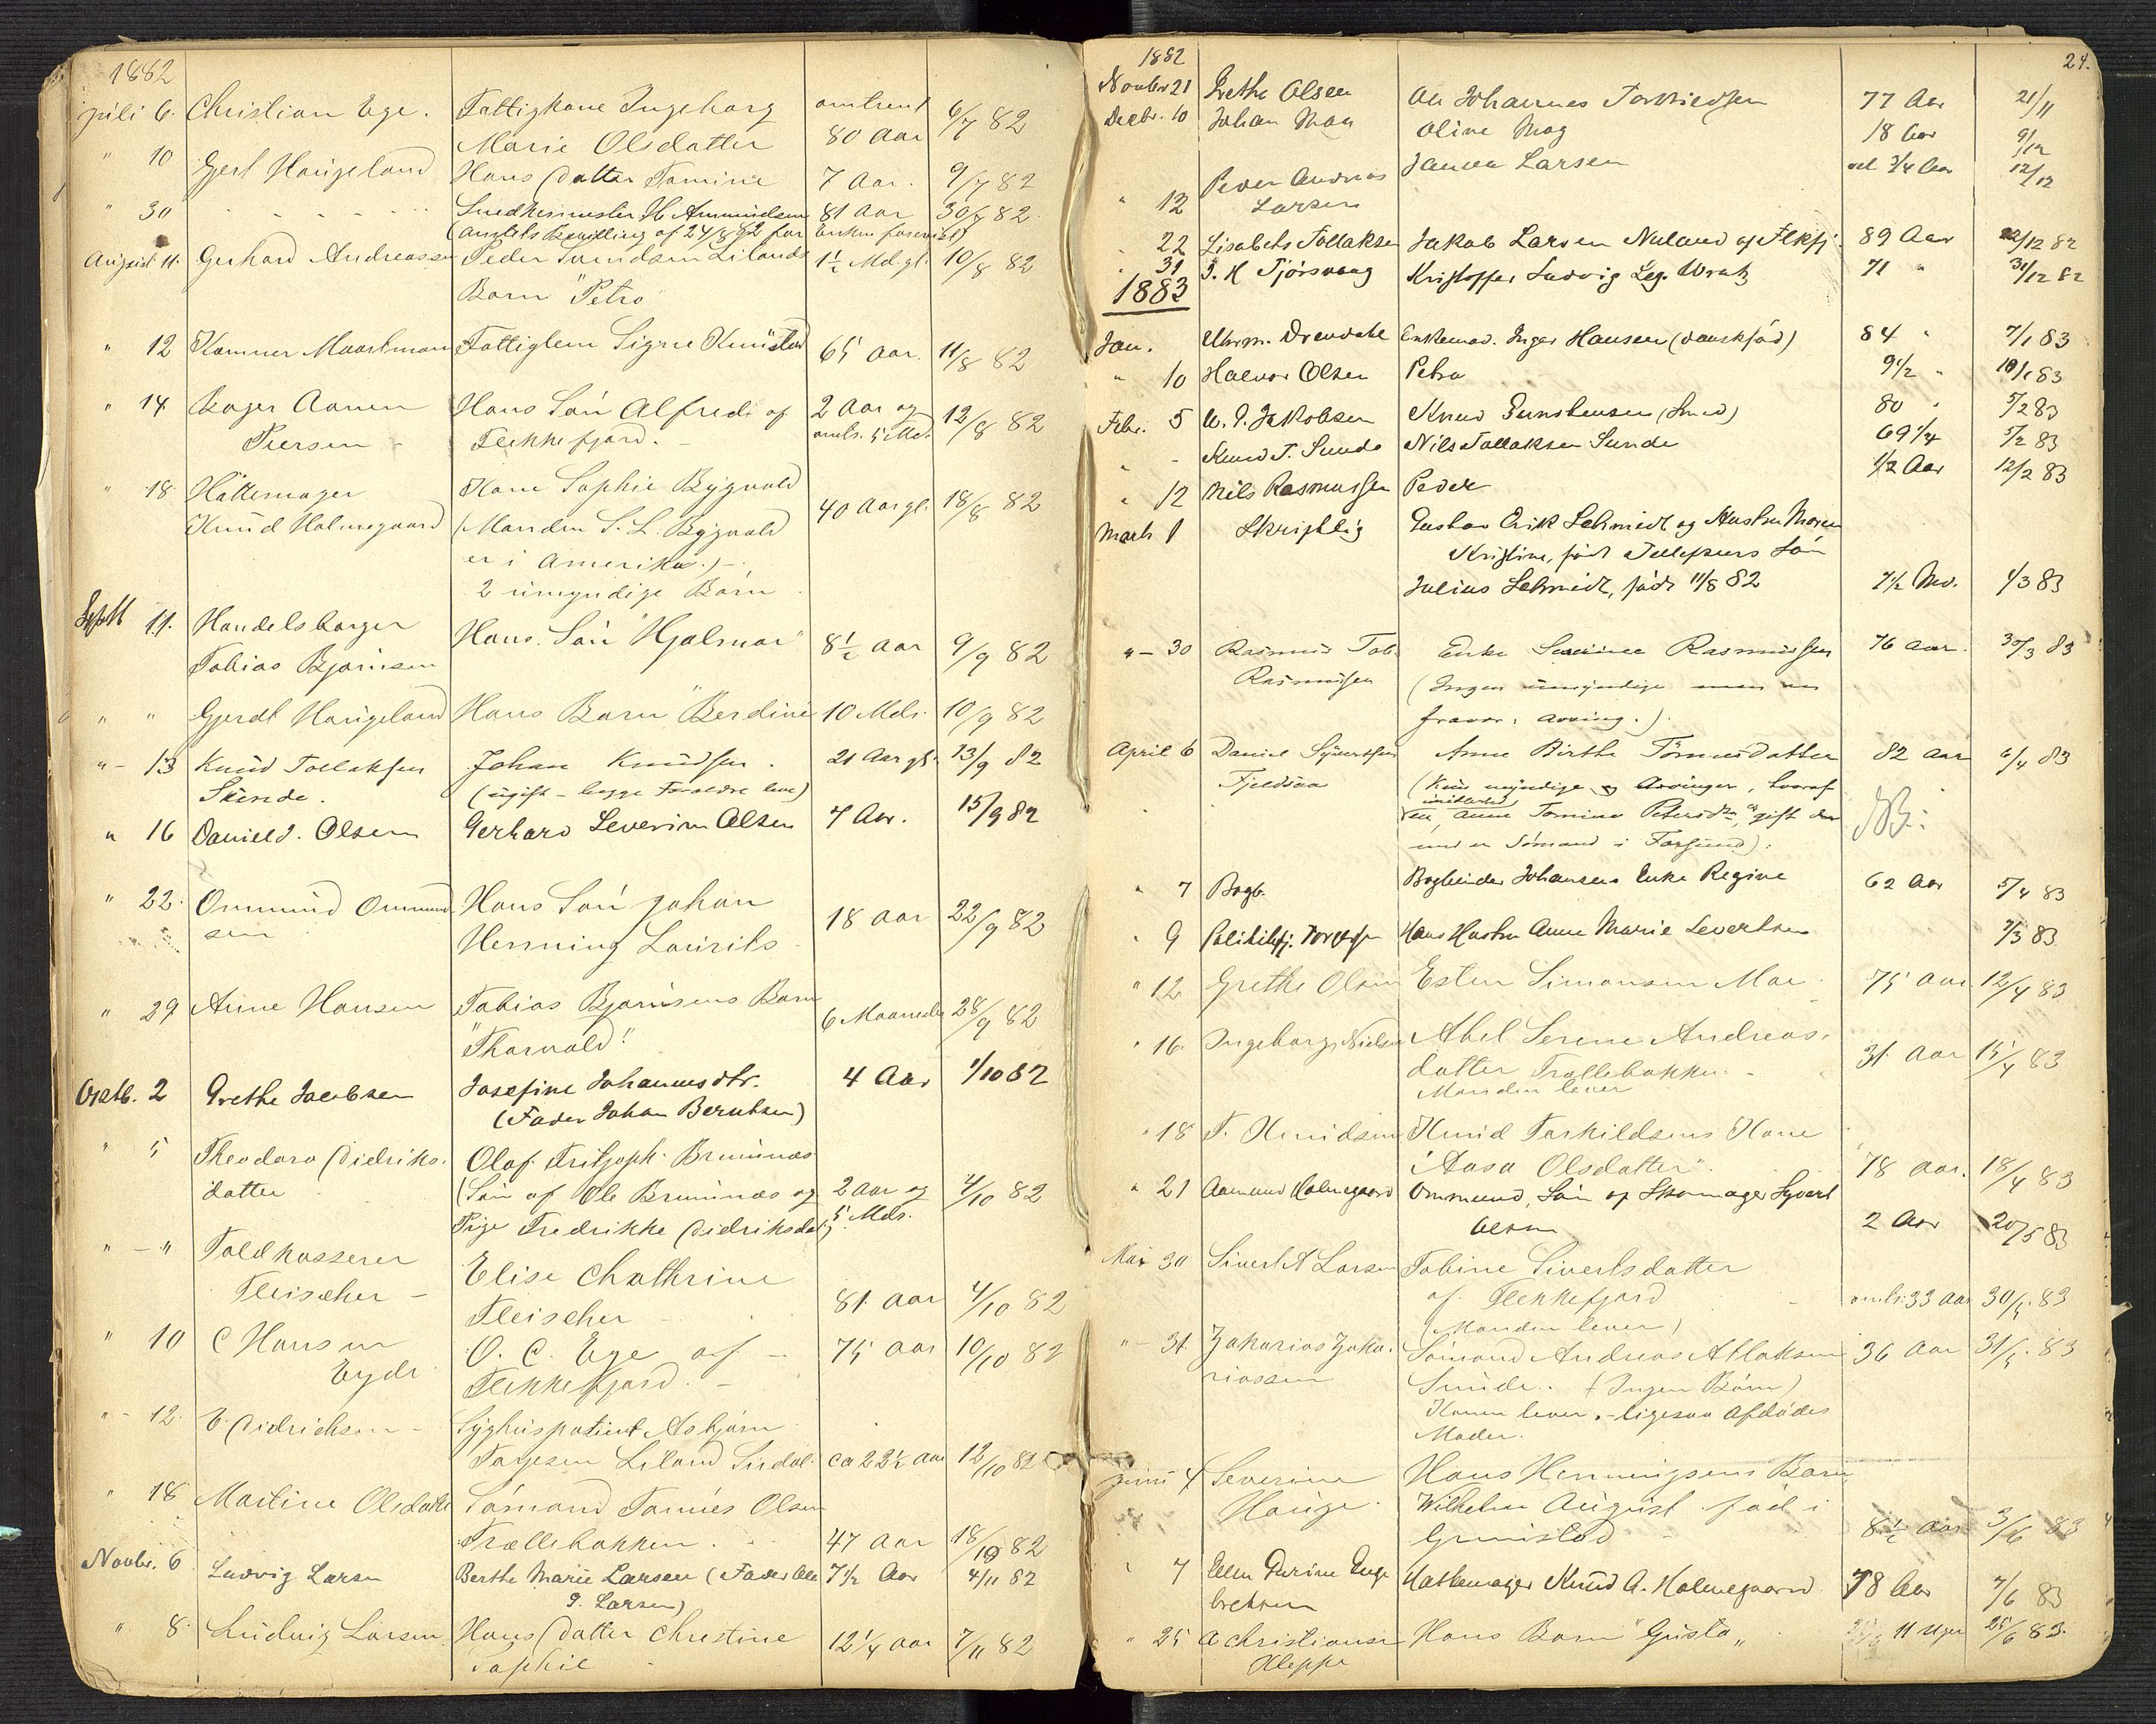 1882
Juli 6. Christian Ege. Fattigkone Ingeborg omtrent 6/7 82
Marie Olsdatter 80 Aar
" 10 Gjert Haugeland Hans Datter Tomine 7 Aar. 9/7 82
" 30 - - - - - Smedkemester H. Ammundsen 81 Aar 30/7 82.
(Amtets Bevilling af 24/8 82 for Enken forevist)
August 11. Gerhard Andreassen Peder Svendsen Lilands 1½ Md. gl. 10/8 82
Barn "Petro"
" 12 Kamner Maartman Fattiglem Signe Knudsd 65 Aar. 11/8 82
" 14 Bager Aanen Hans Søn Alfred af 2 Aar og 12/8 82
Peersen - Flekkefjord. - omtr. 5 Md.
" 18 Hattemager Kone Sophie Bygvold 40 Aar gl. 18/8 82
Knud Holmegaard (Manden S. L. Bygvold
er i Amerika.) -
2 umyndige Børn
Septb 11. Handelsborger Hans Søn "Hjalmar" 8½ Aar 9/9 82
Tobias Bjørnsen
" " Gjerdt Haugeland Hans Barn "Berdine 10 Mdr. 10/9 82
" - 13 Knud Tollaksen Johan Knudsen. 21 Aar gl. 13/9 82
Sunde. (ugift - begge Forældre leve)
" 16 Daniel J. Olsen Gerhard Severin Olsen 7 Aar. 15/9 82
" 22. Ommund Ommund Hans Søn Johan 18 Aar 22/9 82
sen Henning Laurits
" 29 Anne Hansen Tobias Bjørnsens Barn 6 Maaneder 28/9 82
"Thorvald"
Octb. 2 Grethe Jacobsen Josefine Johannesdtr. 4 Aar 1/10 82
(Fader Johan Berntsen)
" 5 Theodora Didriks. Olaf Fritjoph Bruunæs
datter (Søn af Ole Bruunæs og 2 Aar og 4/10 82
Pige Fredrikke Didriksdat) 5 Mdr.
" - " Toldkasserer Elise Chathrine
Fleischer - Fleischer 81 Aar 4/10 82
" 10 C Hansen O. C. Ege af - 75 Aar 10/10 82
Eyde Flekkefjord. -
" - 12. E. Didrichsen - Syghuspatient Asbjørn
Torjesen Liland Sirdal. ca 22½ Aar 12/10 82
" 18 Martine Olsdatter Sømand Tønnes Olsen
Trællebakken. 47 Aar 18/10 82
Novbr. 6 Ludvig Larsen Berthe Marie Larsen (Fader Ole 7½ Aar 4/11 82
P. Larsen)
" 8. Ludvig Larsen Hans Datter Christine 12¼ Aar 7/11 82
Sophie
24.
1882
Novbr 21 Grethe Olsen Ole Johannes Torkildsen 77 Aar 21/11
Decbr. 10 Johan Moy Oline Moy 18 Aar 9/12
" 12 Peder Andreas Janna Larsen vel ¾ Aar 12/12
Larsen
" 22 Lisabeth Tollaksen Jakob Larsen Nuland af Flkfj. 89 Aar 22/12 82
" 31 J. H Tjørsvaag Kristoffer Ludvig Leg. Wratz 71 " 31/12 82
1883
Jan. Uhrm. Drevdahl Enkemad. Inger Hansen (danskfød) 84 " 7/1 83
" 10 Halvor Olsen Petra 9½ " 10/1 83
Febr. 5 A. P. Jakobsen Knud Gunstensen (Smed) 80 " 5/2 83
" - Knud T. Sunde Nils Tollaksen Sunde 69¼ 5/2 83
" 12 Nils Rasmussen Peder ½ Aar 12/2 83
Marts 1 Skriftlig Gustav Erik Schmidt og Hustru Maren
Kristine, født Tellefsens Søn
Julius Schmidt, født 11/8 82 7½ Md. 1/3 83
" - 30 Rasmus Tob. Enke Rasmussen 76 Aar. 30/3 83
Rasmussen (Ingen umyndige men en
fravær. Arving.).
April 6 Daniel Syvertsen Anne Birthe Tønnesdatter 82 Aar 6/4 83
Fjeldsaa (Kun myndige Arvinger, hvoraf
een, Anne Tomine Petersdtr, gift
med en Sømand i Farsund). NB:
" 7 Bogb. Bogbinder Johansens Enke Regine 62 Aar 5/4 83
" 9 Politibtj. Torgersen Hans Hustru Anne Marie Severtsen 7/3 83
" 12 Grethe Olsen Ester Simonsen Moe. 75 Aar 12/4 83
" 16. Ingeborg Nielsen Abel Serene Andreas-
datter Trællebakken. - 31 Aar 15/4 83
Manden lever
" 18 T. Knudsen Knud Torkildsens Kone
"Aasa Olsdatter". 78 Aar. 18/4 83
" 21 Aamund Holmegaard Ommund, Søn af Skomager Syvert
Olsen 2 Aar 20/5 83
Mai 30 Sivert A Larsen Tobine Sivertsdatter
af Flekkefjord - omtr. 33 Aar 30/5. 83
(Manden lever)
" - 31. Zakarias Zaka- Sømand Andreas Atlaksen 36 Aar 31/5. 83
riassen Sunde. (Ingen Børn)
Konen lever. - ligesaa Afdødes
Moder.
Juni 4 Severine Hans Henningsens Barn
Hauge. Wilhelm August født i
Grimstad 8½ Aar 3/6 83
" 7 Ellen Gurine Enge Hattemager Knud A. Holmegaard 78 Aar 7/6 83
bretsen
" 25 A Christiansen Hans Barn "Gusta" 11 Uger 25/6 83.
Kleppe